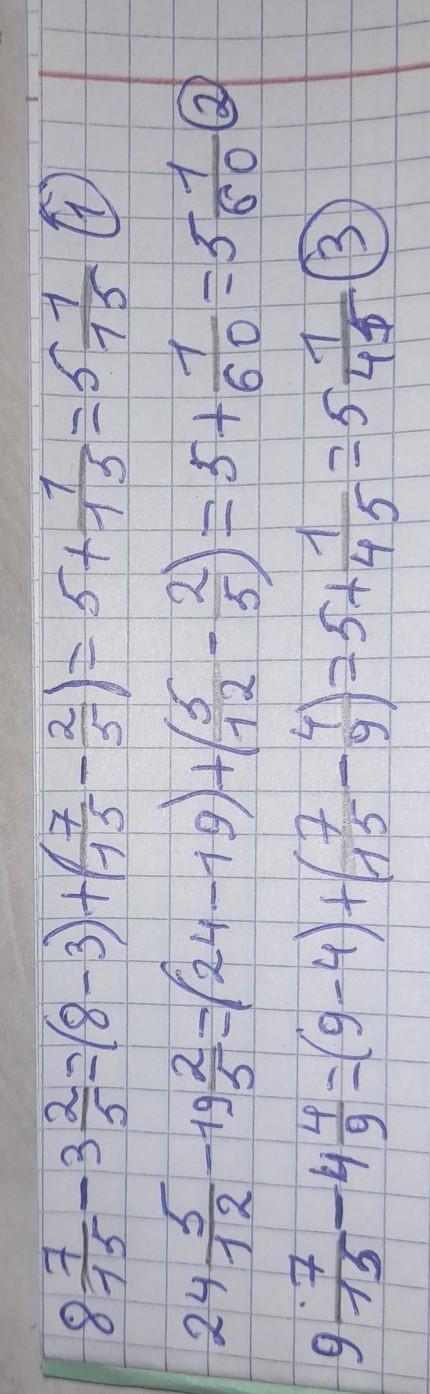 8 7/15 - 3 2/5 = (8 - 3) + (7/15 - 2/5) = 5 + 1/15 = 5 1/15 ①
24 5/12 - 19 2/5 = (24 - 19) + (5/12 - 2/5) = 5 + 1/60 = 5 1/60 ②
9 7/15 - 4 4/9 = (9 - 4) + (7/15 - 4/9) = 5 + 1/45 = 5 1/45 ③